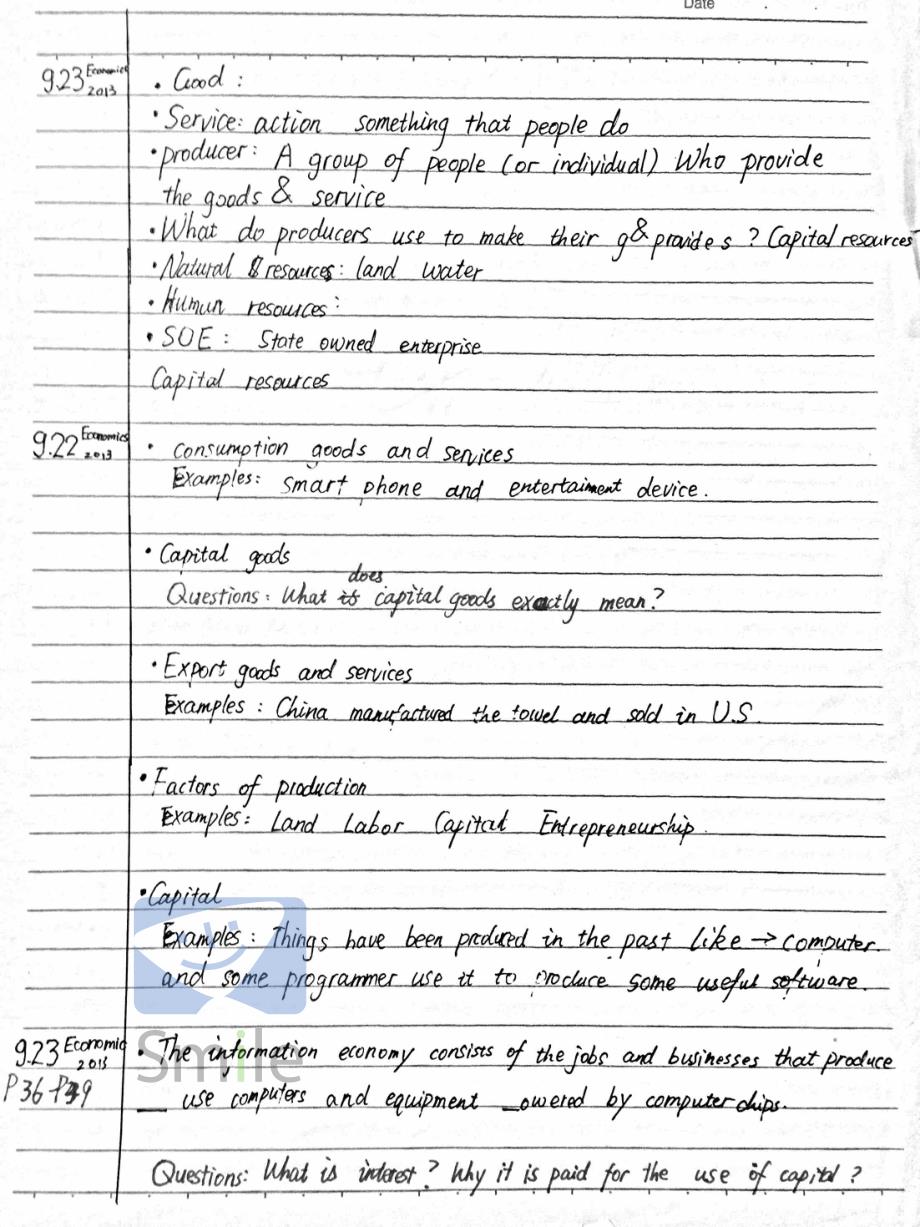 Date
9.23 Economics 2013 • Good :
• Service: action something that people do
• producer: A group of people (or individual) Who provide
the goods & service
• What do producers use to make their g& provides ? Capital resources
• Natural resources: land water
• Human resources:
• SOE : State owned enterprise
Capital resources
9.22 Economics 2013 • consumption goods and services
Examples: smart phone and entertaiment device.
• Capital goods
Questions: What does capital goods exactly mean?
• Export goods and services
Examples : China manufactured the towel and sold in U.S.
• Factors of production
Examples: Land Labor Capital Entrepreneurship.
• Capital
Examples : Things have been produred in the past like → computer.
and some programmer use it to produce some useful software.
9.23 Economic 2013 • The information economy consists of the jobs and businesses that produce
P36 - P39 __ use computers and equipment _owered by computer chips.
Smile
Questions: What is interest? Why it is paid for the use of capital ?